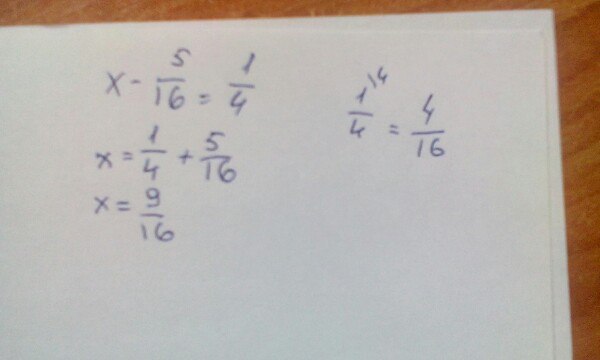 x - 5/16 = 1/4
x = 1/4 + 5/16
x = 9/16
1\4/4 = 4/16